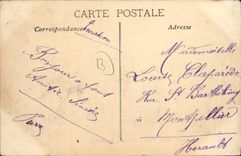 CARTE POSTALE
Correspondance
Adresse
Bonjour à tout
Amitié
Mademoiselle
Louise Claparède
Rue St Barthélémy
à Montpellier
Hérault
B